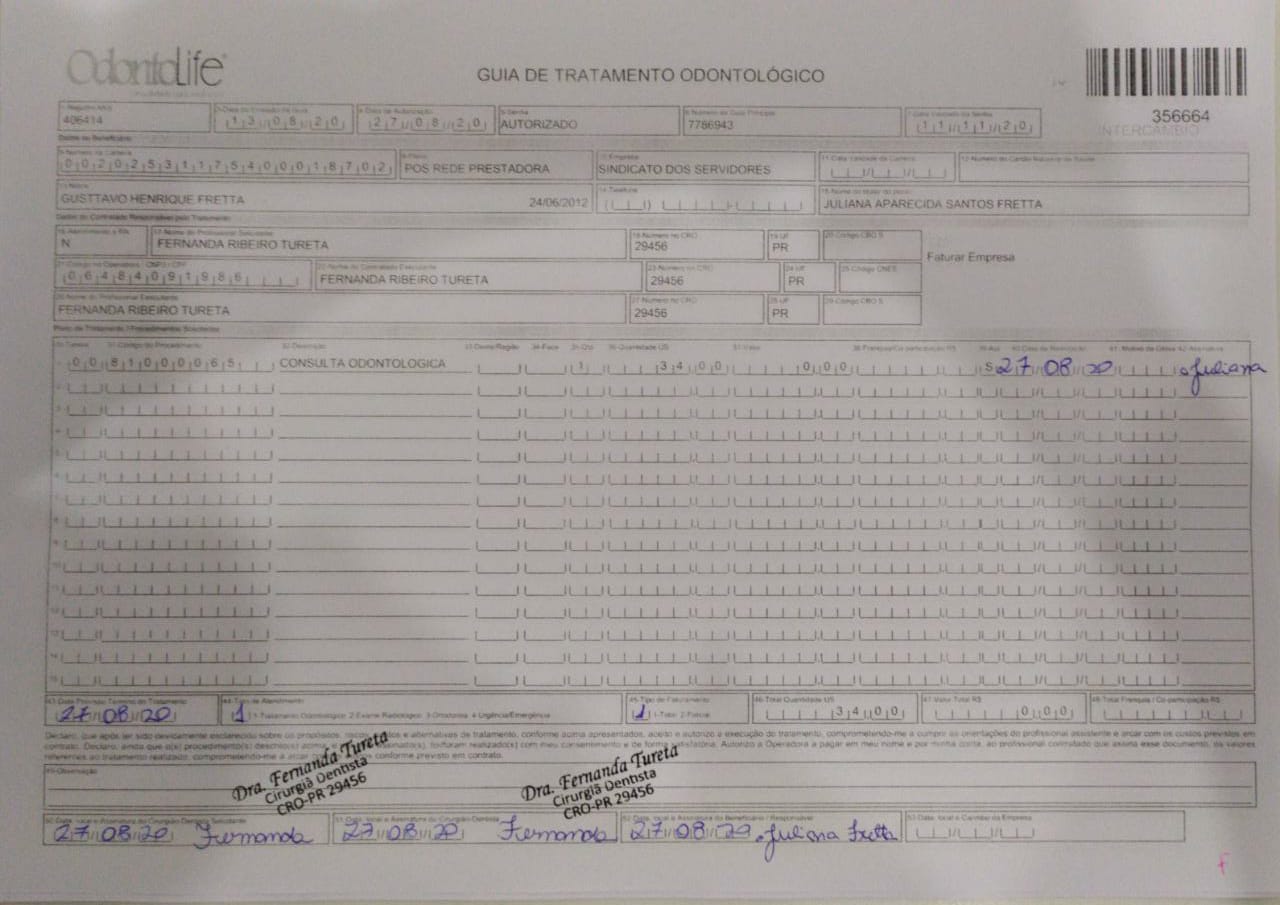 OdontoLife
GUIA DE TRATAMENTO ODONTOLÓGICO
356664
INTERCÂMBIO
1-Registro ANS
406414
3-Data de Emissão da Guia
13/08/20
4-Data de Autorização
27/08/20
5-Senha
AUTORIZADO
6-Número da Guia Principal
7786943
7-Data Validade da Senha
11/11/20
Dados do Beneficiário
8-Número da Carteira
00202531175400018702
9-Plano
POS REDE PRESTADORA
10-Empresa
SINDICATO DOS SERVIDORES
11-Data Validade da Carteira
12-Número do Cartão Nacional de Saúde
13-Nome
GUSTTAVO HENRIQUE FRETTA 24/06/2012
14-Telefone
15-Nome do titular do plano
JULIANA APARECIDA SANTOS FRETTA
Dados do Contratado Responsável pelo Tratamento
16-Atendimento a RN
N
17-Nome do Profissional Solicitante
FERNANDA RIBEIRO TURETA
18-Número no CRO
29456
19-UF
PR
20-Código CBO S
Faturar Empresa
21-Código na Operadora - CNPJ / CPF
06484091986
22-Nome do Contratado Executante
FERNANDA RIBEIRO TURETA
23-Número no CRO
29456
24-UF
PR
25-Código CNES
26-Nome do Profissional Executante
FERNANDA RIBEIRO TURETA
27-Número no CRO
29456
28-UF
PR
29-Código CBO S
Plano de Tratamento / Procedimentos Solicitados
30-Tabela 31-Código do Procedimento 32-Descrição 33-Dente/Região 34-Face 35-Qtd 36-Quantidade US 37-Valor 38-Franquia/Co-participação R$ 39-Aut 40-Data de Realização 41-Motivo da Glosa 42-Assinatura
00 81000065 CONSULTA ODONTOLOGICA 1 34 00 0 00 S 27/08/20 Juliana
43-Data Previsão Término do Tratamento
27/08/20
44-Tipo de Atendimento
1 1-Tratamento Odontológico 2-Exame Radiológico 3-Ortodontia 4-Urgência/Emergência
45-Tipo de Faturamento
1 1-Total 2-Parcial
46-Total Quantidade US
34 00
47-Valor Total R$
0 00
48-Total Franquia / Co-participação R$
Declaro, que após ter sido devidamente esclarecido sobre os propósitos, riscos, custos e alternativas de tratamento, conforme acima apresentados, aceito e autorizo a execução do tratamento, comprometendo-me a cumprir as orientações do profissional assistente e arcar com os custos previstos em
contrato. Declaro, ainda que o(s) procedimento(s) descrito(s) acima, assinado(s), foi/foram realizado(s) com meu consentimento e de forma satisfatória. Autorizo a Operadora a pagar em meu nome e por minha conta, ao profissional contratado que assina esse documento, os valores
referentes ao tratamento realizado, comprometendo-me a arcar conforme previsto em contrato.
49-Observação
Dra. Fernanda Tureta
Cirurgiã Dentista
CRO-PR 29456
Dra. Fernanda Tureta
Cirurgiã Dentista
CRO-PR 29456
50-Data, local e Assinatura do Cirurgião-Dentista Solicitante
27/08/20 Fernanda
51-Data, local e Assinatura do Cirurgião-Dentista
27/08/20 Fernanda
52-Data, local e Assinatura do Beneficiário / Responsável
27/08/20 Juliana Fretta
53-Data, local e Carimbo da Empresa
F